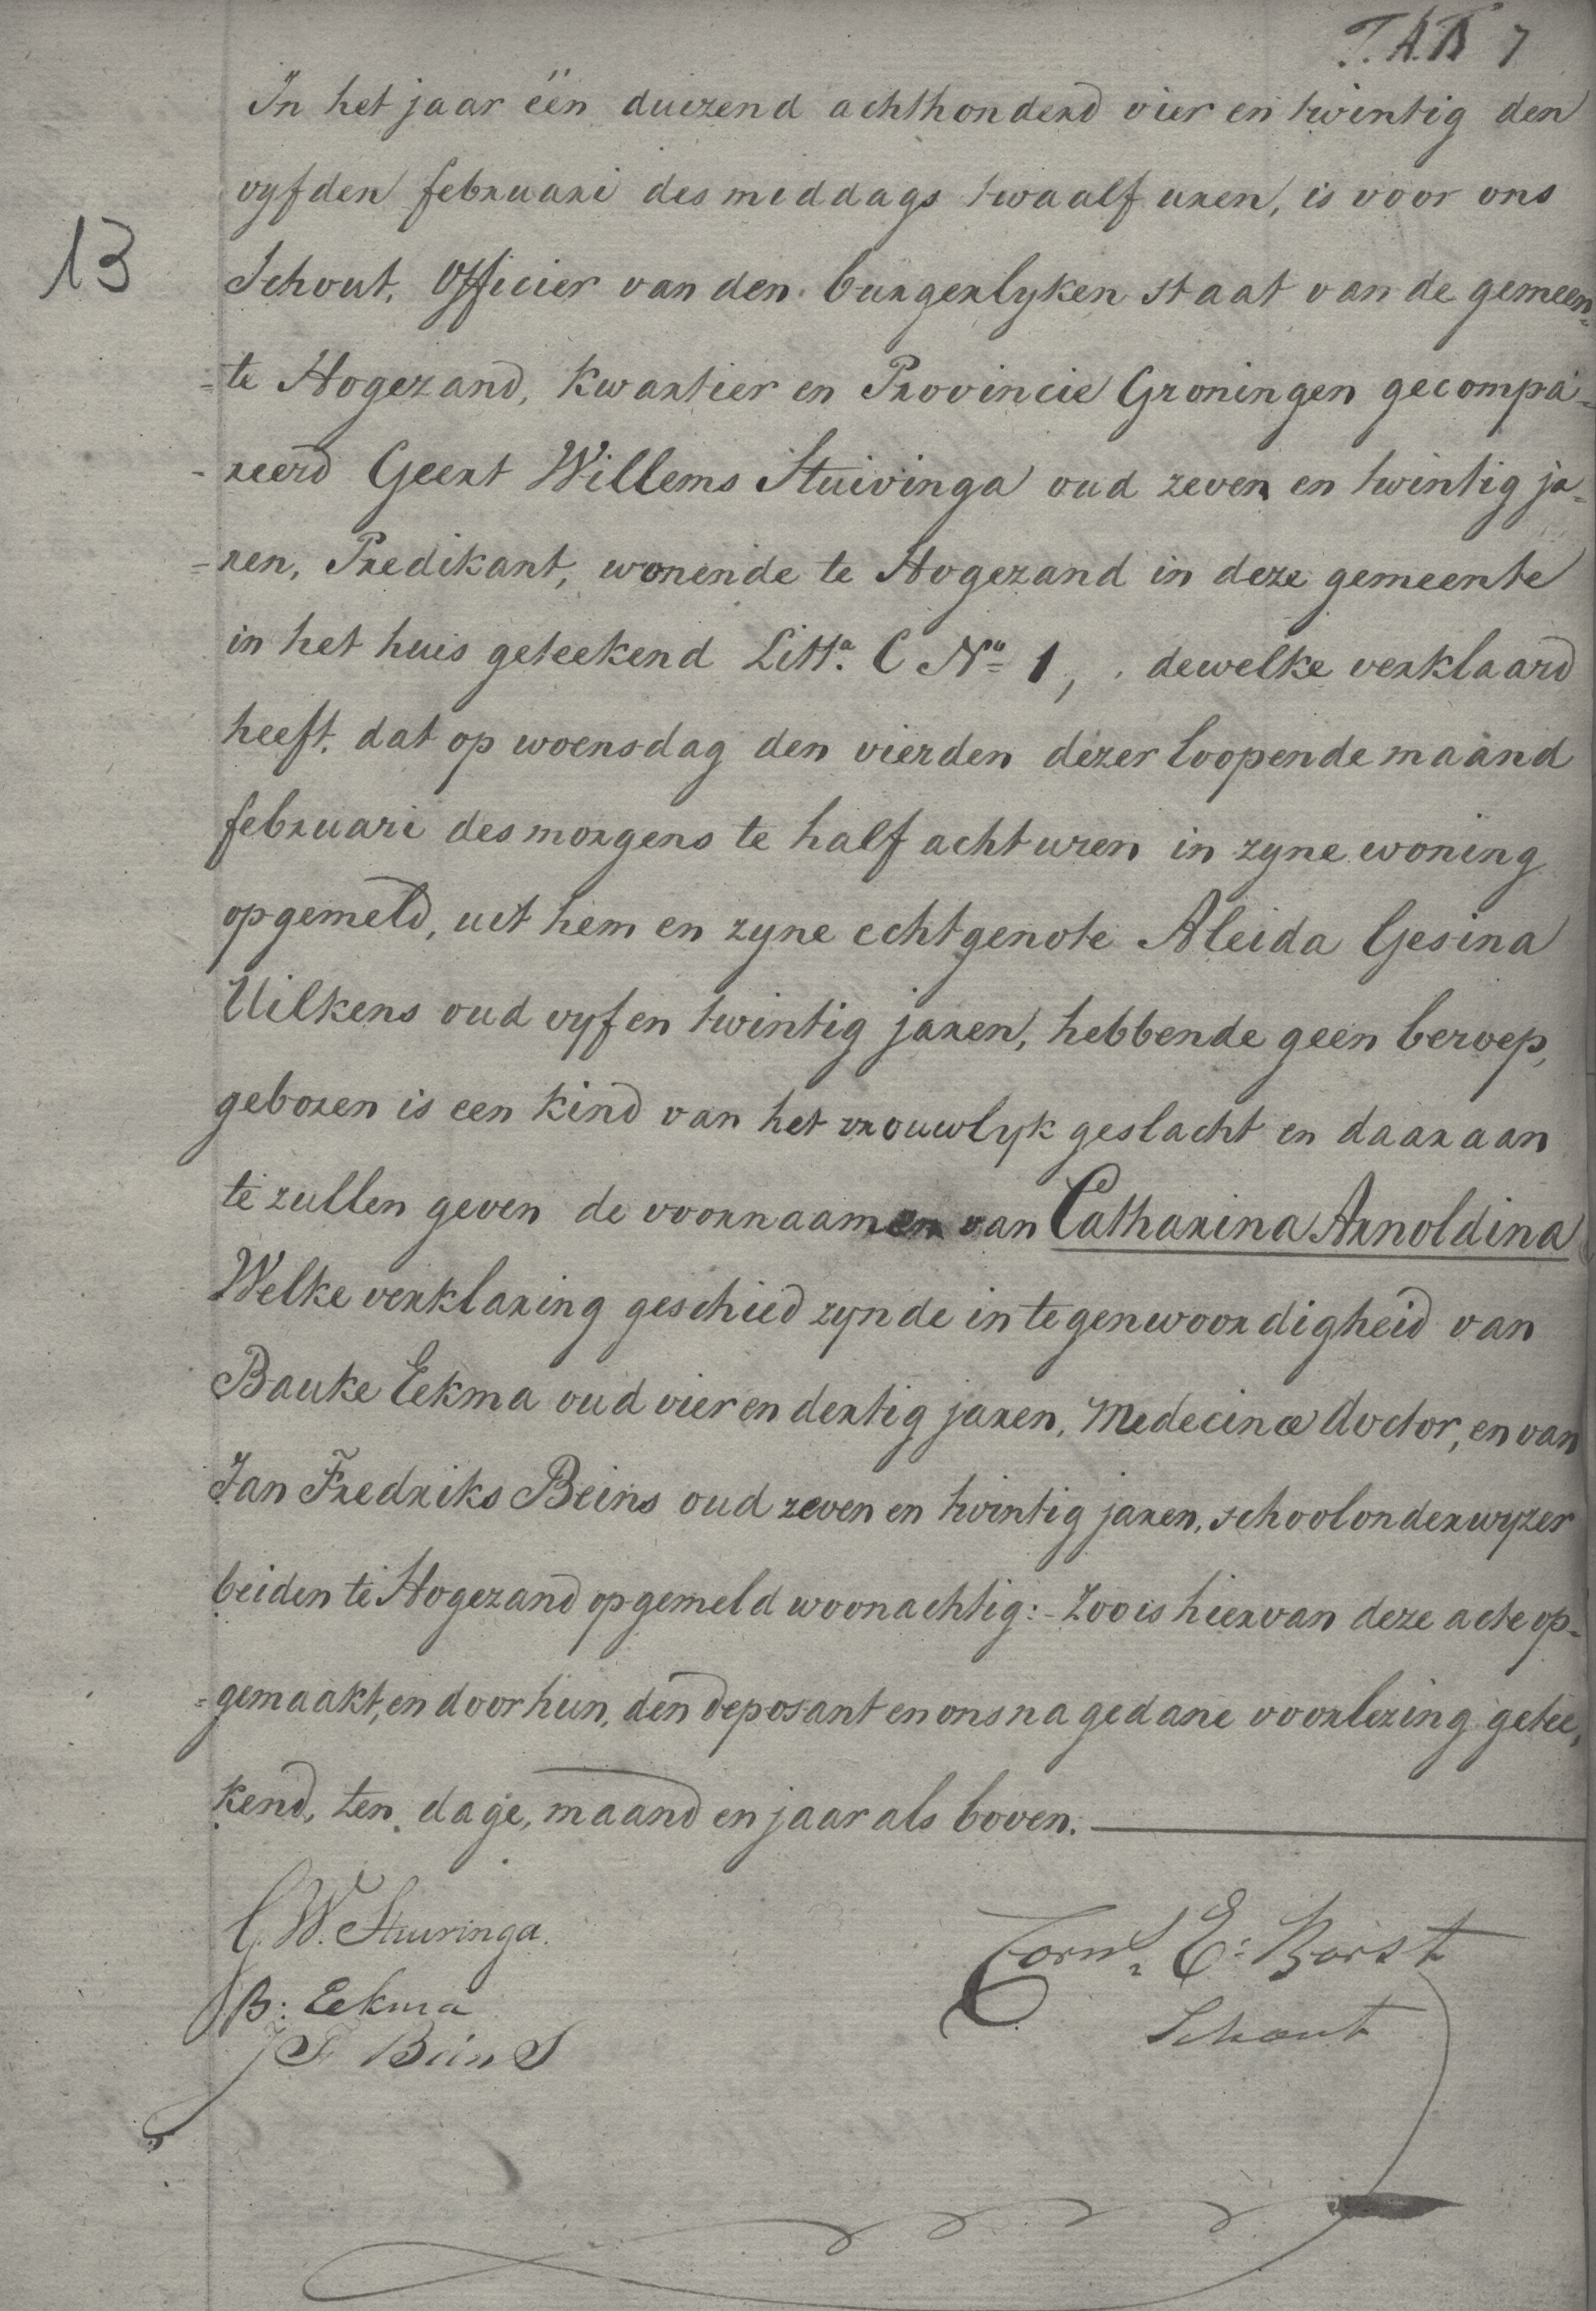 7
In het jaar één duizend achthonderd vier en twintig den
vyfden februari des middags twaalf uren, is voor ons
13
Schout, Officier van den burgerlyken staat van de gemeen=
=te Hogezand, kwartier en Provincie Groningen gecompa=
-reerd Geert Willems Stuivinga oud zeven en twintig ja=
=ren, Predikant, wonende te Hogezand in deze gemeente
in het huis geteekend Litta. C No 1, dewelke verklaard
heeft, dat op woensdag den vierden dezer loopende maand
februari des morgens te half acht uren in zyne woning
opgemeld, uit hem en zyne echtgenote Aleida Gesina
Uilkens oud vyf en twintig jaren, hebbende geen beroep,
geboren is een kind van het vrouwlyk geslacht en daaraan
te zullen geven de voornaamen van Catharina Arnoldina
Welke verklaring geschied zynde in tegenwoordigheid van
Bauke Eekma oud vier en dertig jaren, Medecinæ doctor, en van
Jan Fredriks Beins oud zeven en twintig jaren, schoolonderwyzer
beiden te Hogezand opgemeld woonachtig:- Zoo is hiervan deze acte op=
=gemaakt, en door hun, den deposant en ons na gedane voorlezing getee,
kend, ten dage, maand en jaar als boven.
G. W. Stuivinga.
Corns. E: Borst
B: Eekma
Schout
J F Beins